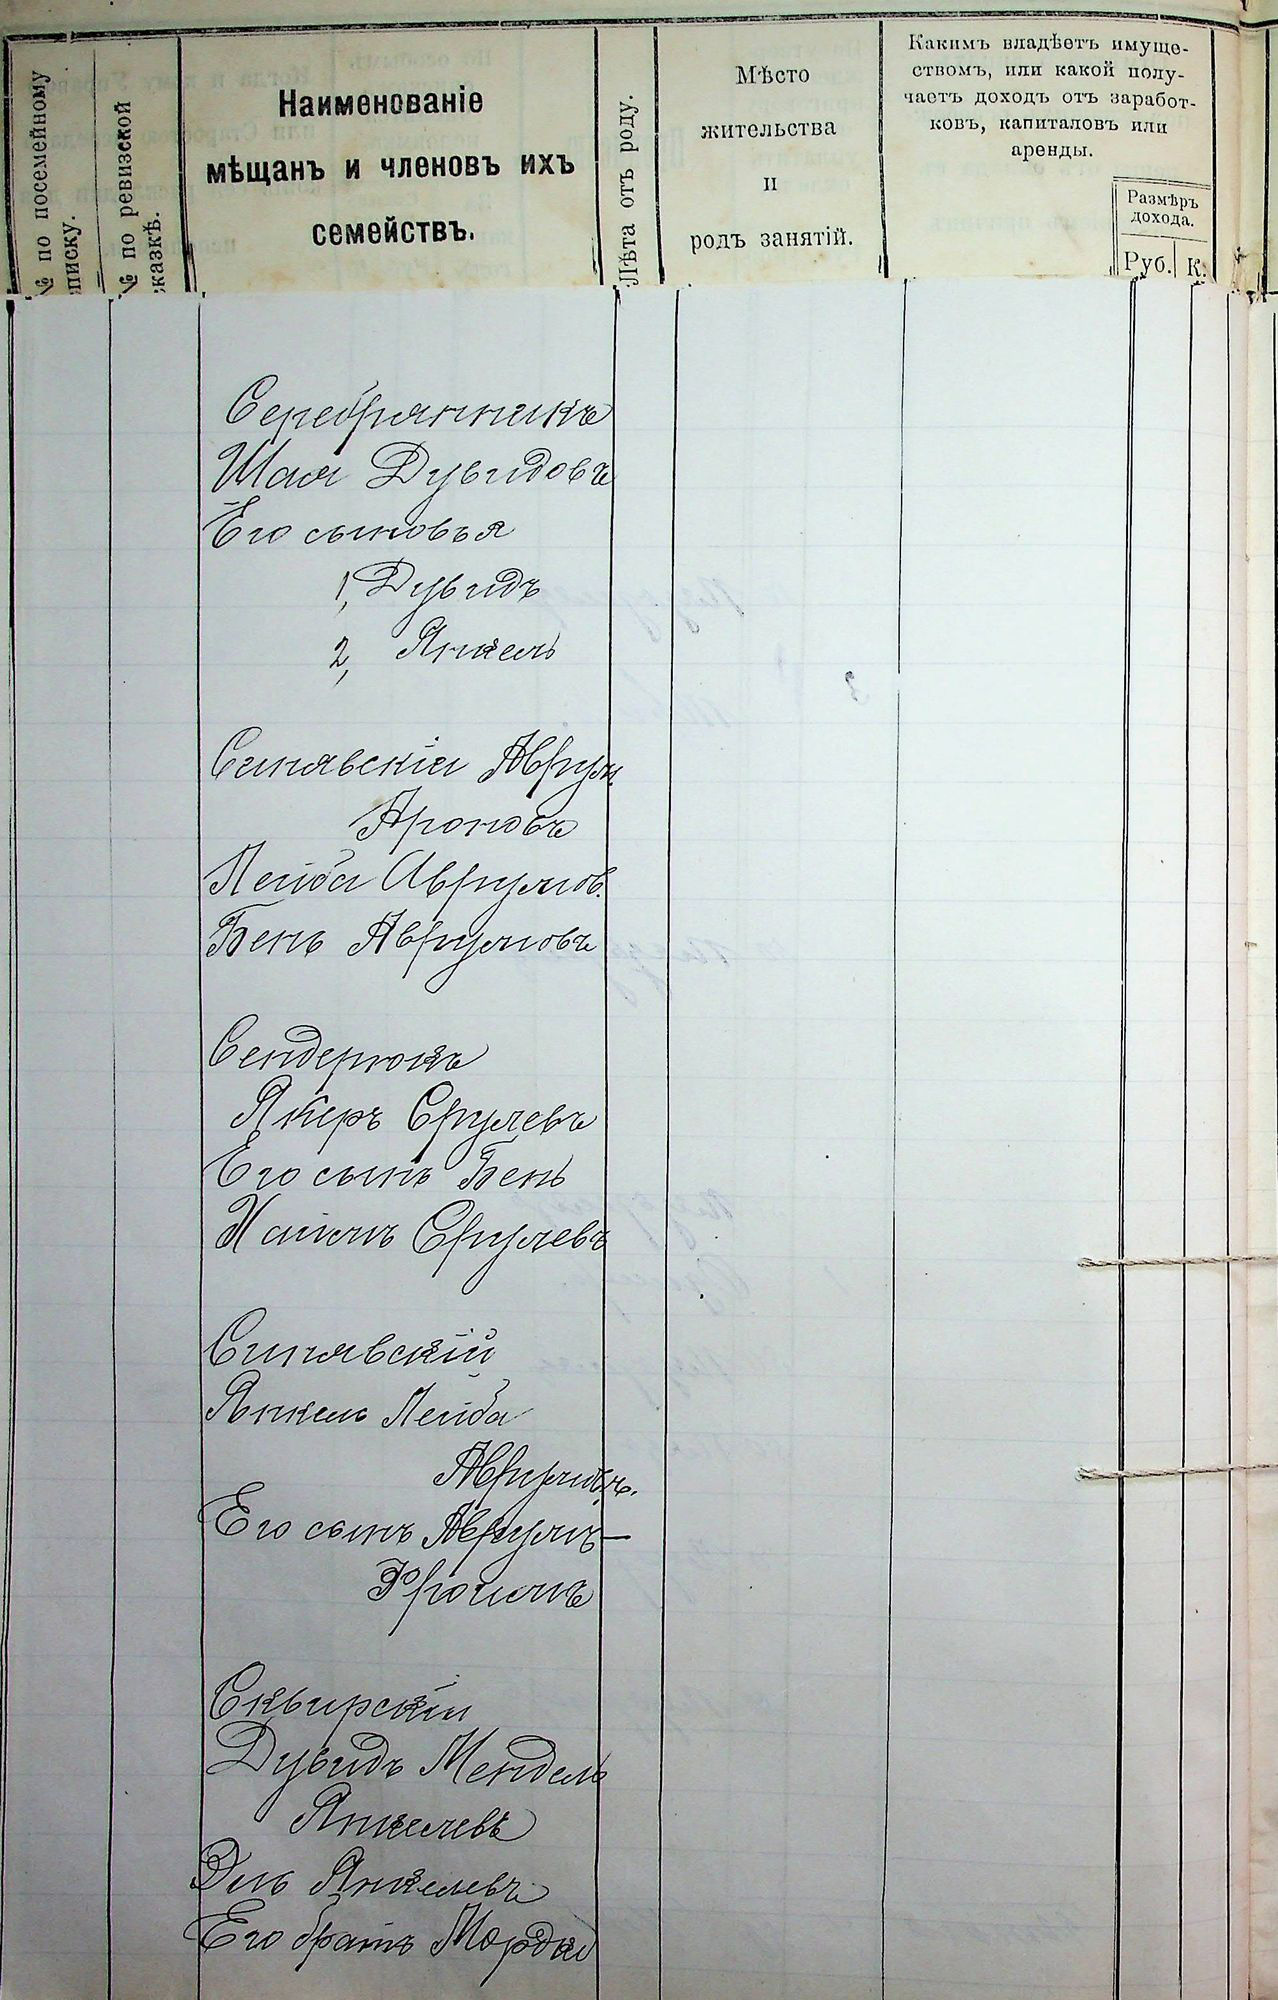 № по посемейному
списку.
№ по ревизской
сказкѣ.
Наименованіе
мѣщанъ и членовъ ихъ
семействъ.
Лѣта отъ роду.
Мѣсто
жительства
и
родъ занятій.
Какимъ владѣетъ имуще-
ствомъ, или какой полу-
чаетъ доходъ отъ заработ-
ковъ, капиталовъ или
аренды.
Размѣръ
дохода.
Руб. К.
Серебрянникъ
Шая Дувидовъ
Его сыновья
1, Дувидъ
2, Янкель
Синявскій Аврум.
Ароновъ
Лейба Аврумов.
Бень Аврумовъ
Сендерюкъ
Якеръ Срулевъ
Его сынъ Бень
Хаимъ Срулевъ
Синявскій
Янкель Лейба
Аврумовъ.
Его сынъ Аврумъ—
Фроимъ
Сквирскій
Дувидъ Мендель
Янкелевъ
Эль Янкелевъ
Его братъ Мордко